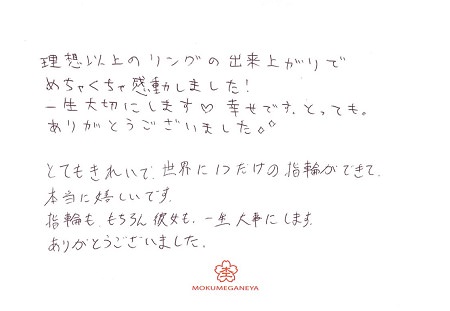 理想以上のリングの出来上がりで
めちゃくちゃ感動しました!
一生大切にします♡ 幸せです、とっても。
ありがとうございました。
とてもきれいで、世界に1つだけの指輪ができて、
本当に嬉しいです。
指輪も、もちろん彼女も、一生大事にします。
ありがとうございました。
MOKUMEGANEYA